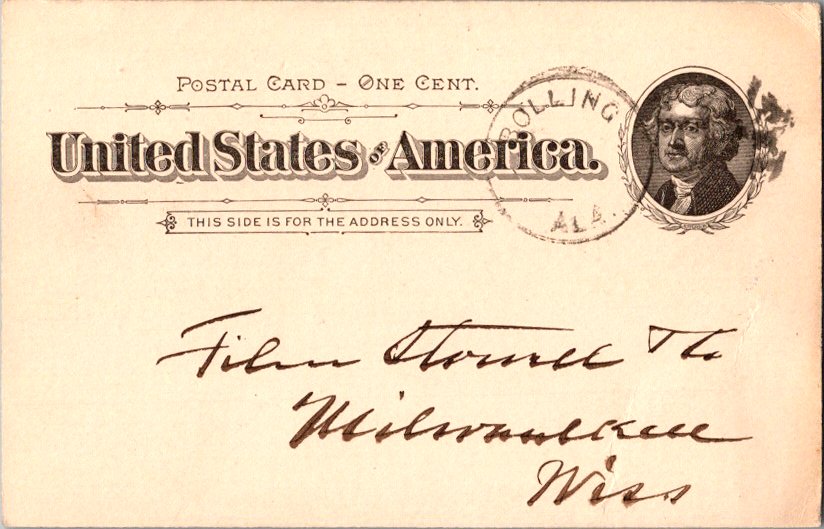 POSTAL CARD - ONE CENT.
United States OF America.
THIS SIDE IS FOR THE ADDRESS ONLY.
BOLLING
ALA.
Filer Stowell
Milwaukee
Wiss